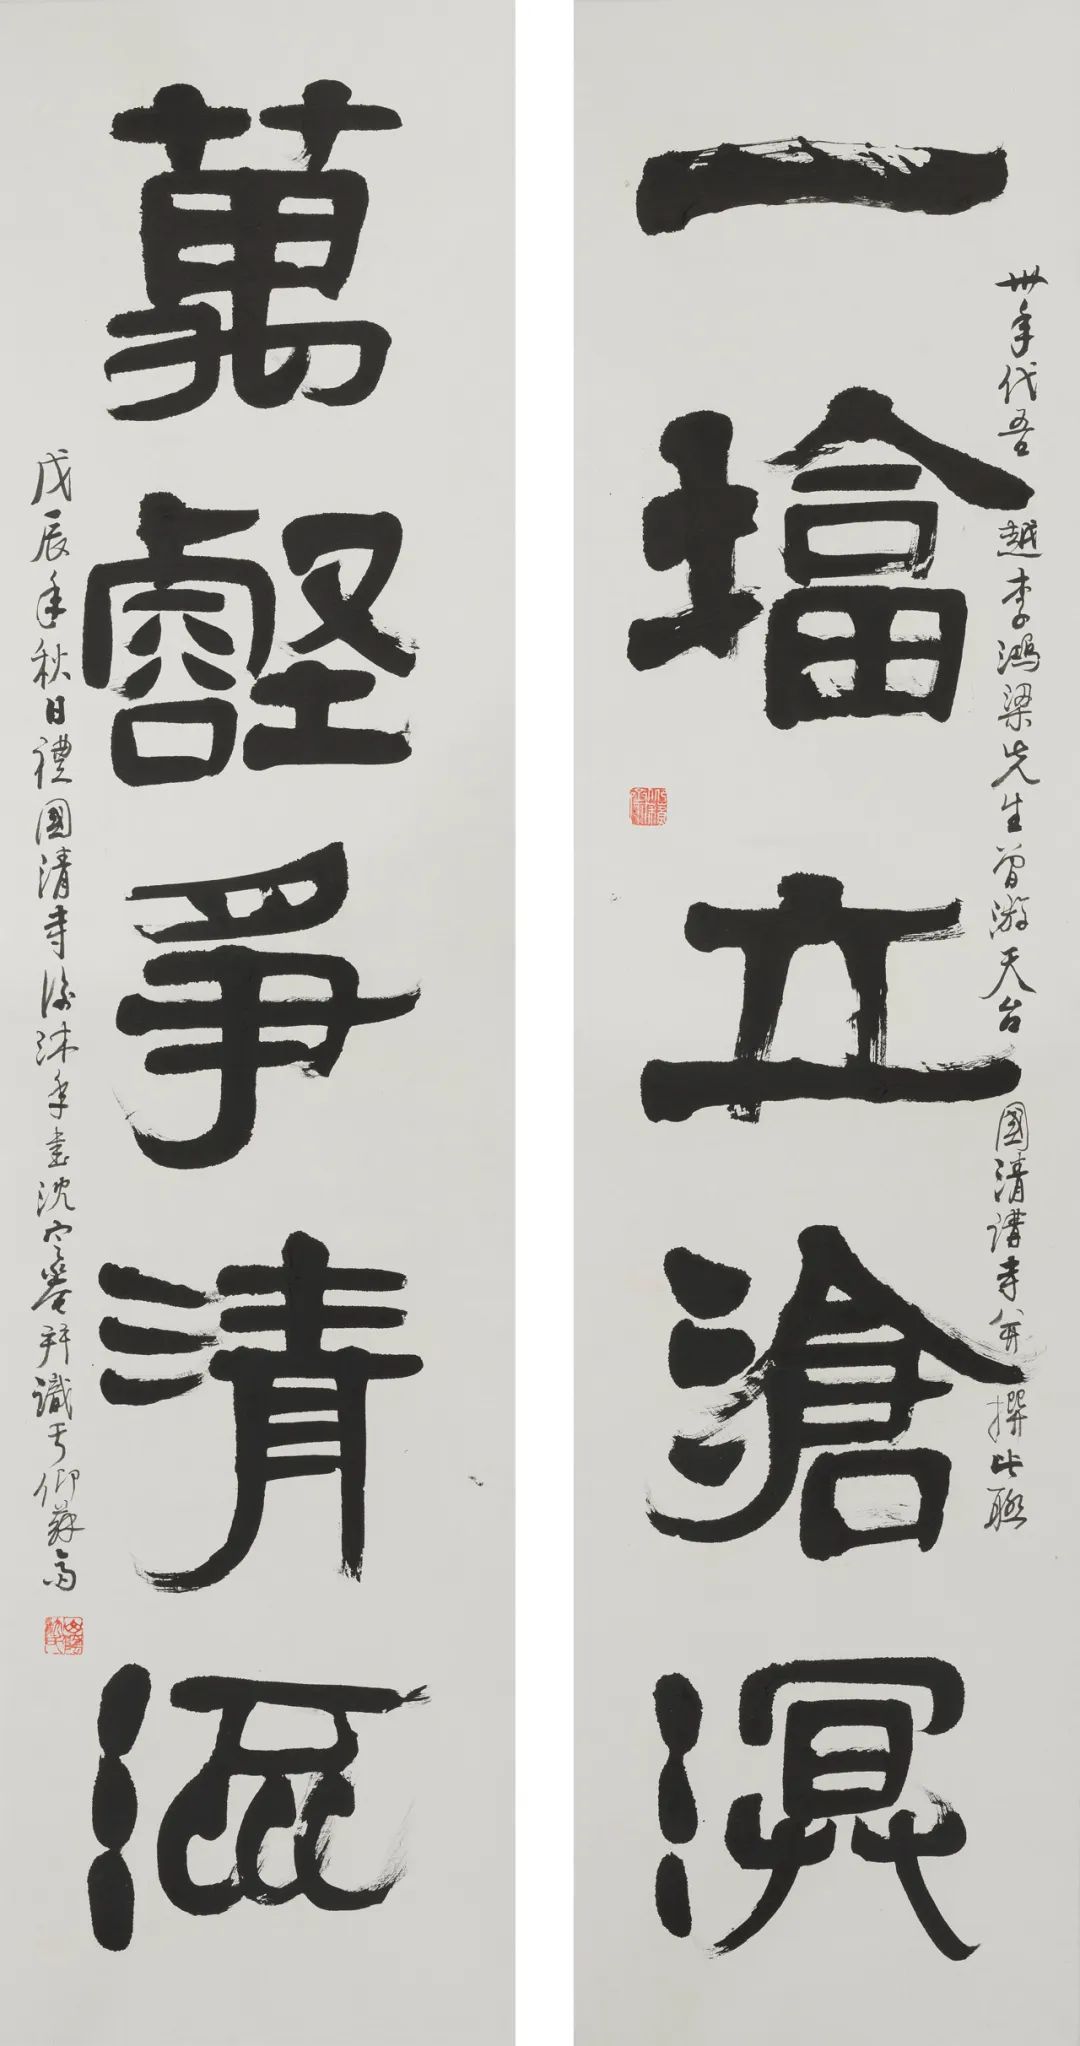 一墖立滄溟
卅年代吾越李鴻梁先生曾游天台國清講寺並撰此聯
萬壑爭清流
戊辰年秋日禮國清寺後沐手書沈定菴拜識于仰蘇齋